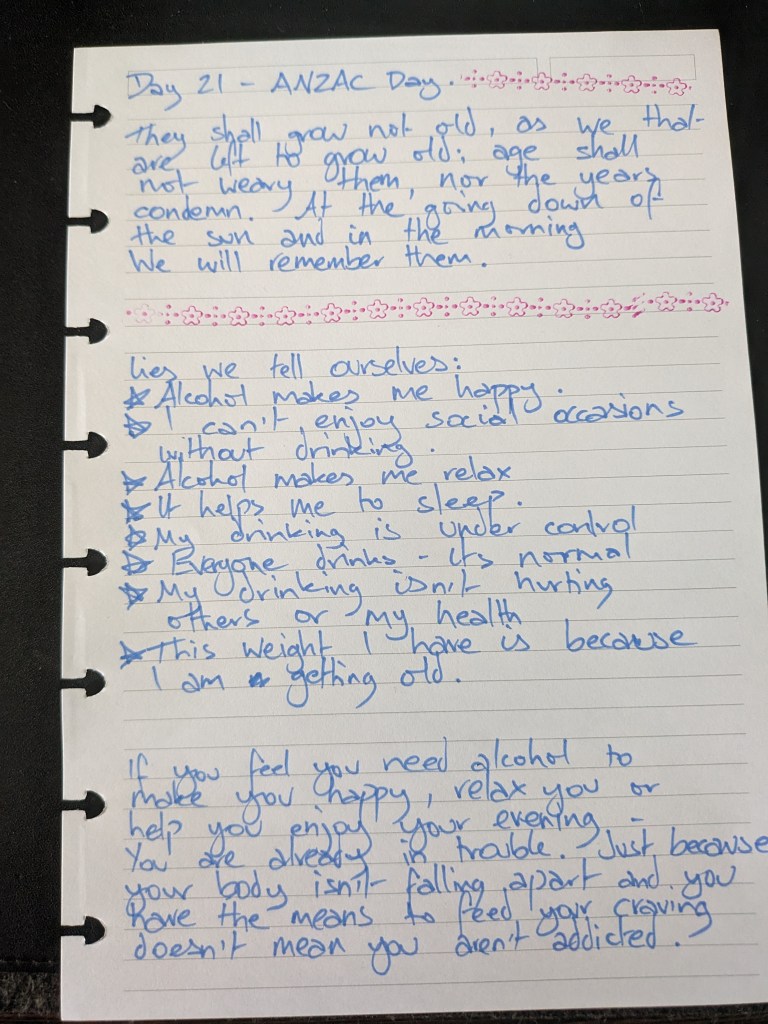 Day 21 - ANZAC Day.
They shall grow not old, as we that
are left to grow old: age shall
not weary them, nor the years
condemn. At the going down of
the sun and in the morning
We will remember them.
Lies we tell ourselves:
☆ Alcohol makes me happy.
☆ I can't enjoy social occasions
without drinking.
☆ Alcohol makes me relax
☆ It helps me to sleep.
☆ My drinking is under control
☆ Everyone drinks - its normal
☆ My drinking isn't hurting
others or my health
☆ This weight I have is because
I am getting old.
If you feel you need alcohol to
make you happy, relax you or
help you enjoy your evening -
You are already in trouble. Just because
your body isn't falling apart and you
have the means to feed your craving
doesn't mean you aren't addicted.